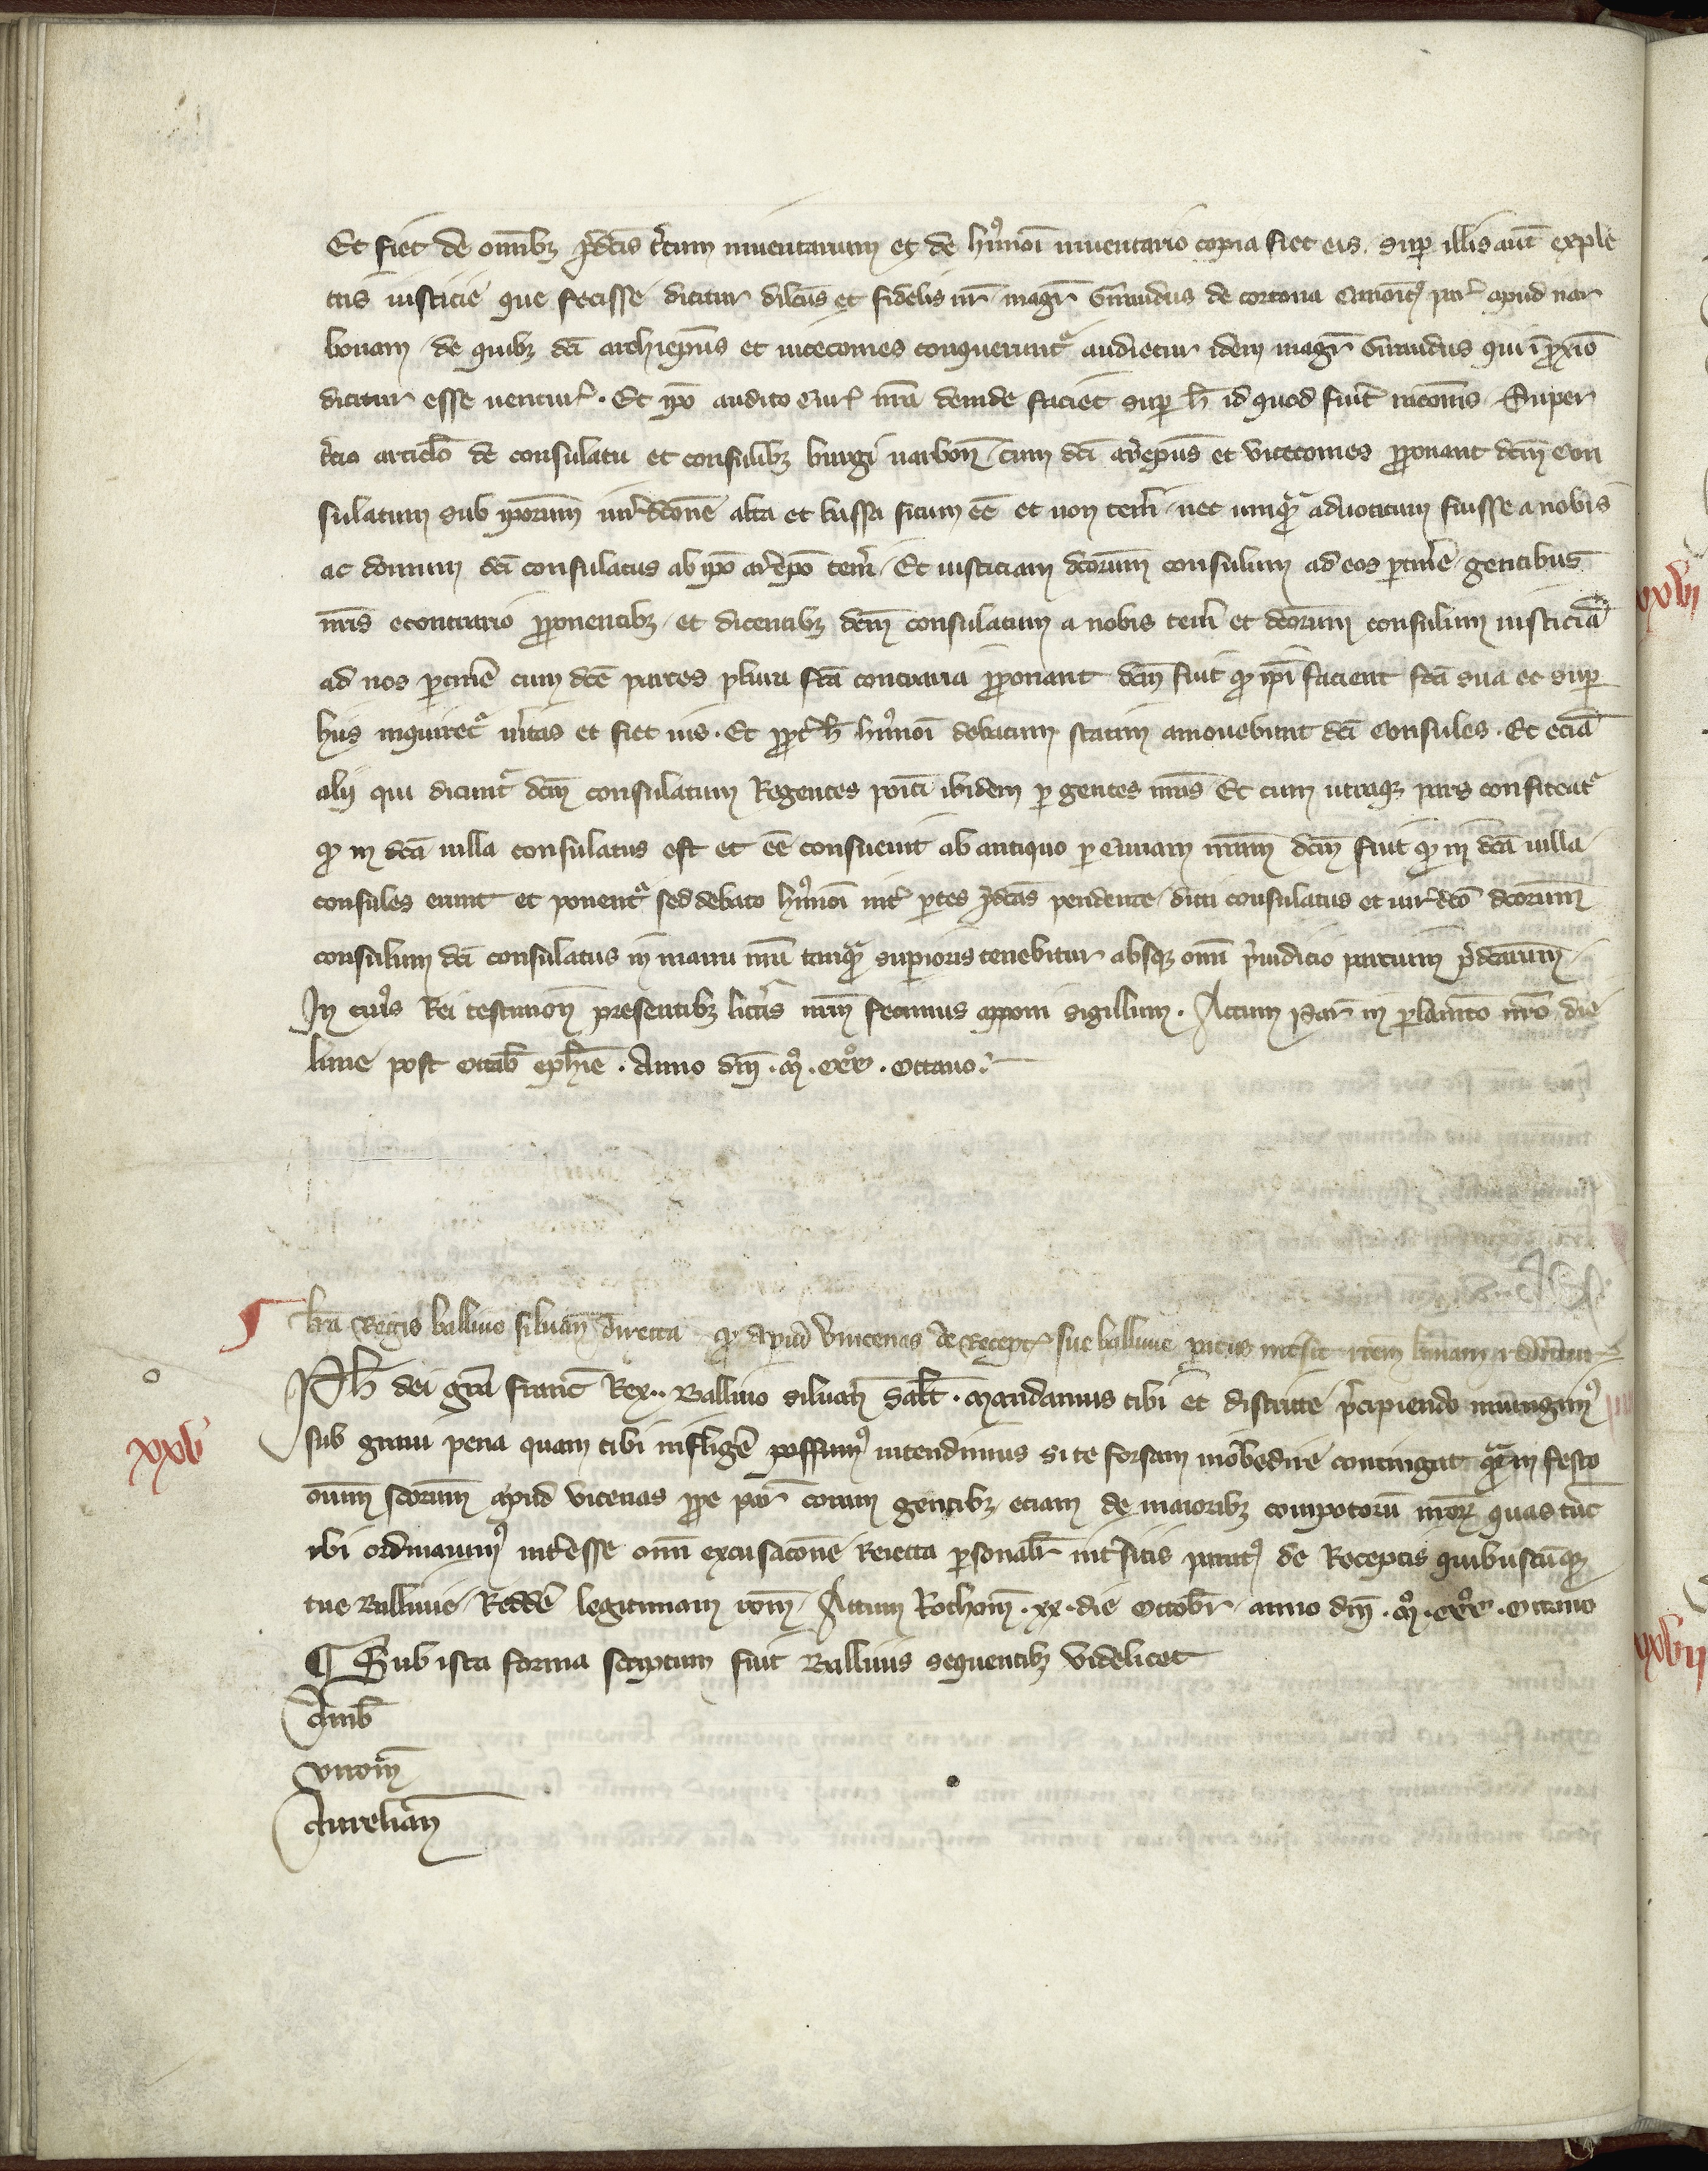 Et fiet de omībꝫ p̄dc̄is c̄tum inuentarium et de hꝰmoī inuentario copia fiet eis. suꝑ illis aut̄ exple
tis iusticie que fecisse dicitur dilc̄us et fidelis nr̄ magr̄ Girardus de cortona canoīc par̄ apud nar
bonam de quibꝫ dc̄i archiep̄us et vicecomes conquerunt᷑ audietur idem magr̄ Girardus qui ī ꝓxīo
dicitur esse ventur᷑. Et ip̄o audito Cur᷑ nr̄a deinde faciet suꝑ h̄ id quod fuit᷑ racōnis. Super
t̄cio articl̄o de consulatu et consulibꝫ burgi narbon̄ cum dc̄i arc̄ep̄us et vicecomes ꝓponant dc̄m con
sulatum sub ip̄orum iur̄dc̄one alta et bassa situm ēē et non ten̄i nec unqᷓ aduocatum fuisse a nobis
ac domum dc̄i consulatus ab ip̄o arc̄ep̄o ten̄i. Et iusticiam dc̄orum consulum ad eos ꝑtin̄e gentibus
nr̄is econtrario ꝓponentibꝫ et dicentibꝫ dc̄m consulatum a nobis ten̄i et dc̄orum consulum iusticiā
ad nos ꝑtin̄e cum dc̄e partes plura fc̄a contraria ꝓponant dc̄m fuit ꝙ ip̄i facient fc̄a sua et suꝑ
hiis inquiret᷑ v̄itas et fiet ius. Et ꝓpt̄ h̄ hꝰmoī debatum statim amouebunt᷑ dc̄i consules. Et eciā
alii qui dicunt᷑ dc̄m consulatum Regentes positi ibidem ꝑ gentes nr̄as Et cum utraqꝫ pars confiteat᷑
ꝙ in dc̄a villa consulatus est et ēē consueuit ab antiquo ꝑ Curiam nr̄am dc̄m fuit ꝙ in dc̄a villa
consules erunt et ponent᷑ sed debato hꝰmoī int̄ partes p̄dc̄as pendente dicti consulatus et iur̄dc̄o dc̄orum
consulum dc̄i consulatus in manu nr̄a tanqᷓ superioris tenebitur absqꝫ omī p̄iudicio partium p̄dc̄arum
In cuiꝰ Rei testimon̄ presentibꝫ litt̄is nr̄m fecimus apponi sigillum. Actum par̄ in ꝑlamēto nr̄o die
lune post octab̄ eph̄ie. Anno dn̄i. mº. cccº xxº. octauo.
lr̄a Regis balliuo siluan̄ directa ꝙ apud vincenas de Recept᷑ sue balliuie
Ph̄ dei gr̄a franc̄ Rex.. Balliuo siluan̄ Salt̄. Mandamus tibi et districte p̄cipiendo iniungimꝰ
sub graui pena quam tibi infligē possumꝰ intendimus si te forsam inobedire contingat qᷓ in festo
omīm sc̄orum apud vicenas ꝓpe par̄ coram gentibꝫ etiam de maioribꝫ compotorū nr̄orꝝ quas tūc
ibi ordinauimꝰ int̄esse omī excusacōne Reiecta ꝑsonalit̄ int̄sitis paratꝰ de Receptis quibuscūqꝫ
tue Balliuie Redd̄e legitimam rōm. Actum Rothom̄. xx. die Octobr̄ anno dn̄i. mº. cccº xxº. octauo
¶ Sub ista forma scriptum fuit Balliuis sequentibꝫ videlicet
Amb̄
viroṁ
Aurelian̄
xxv
xxvi
xxvii